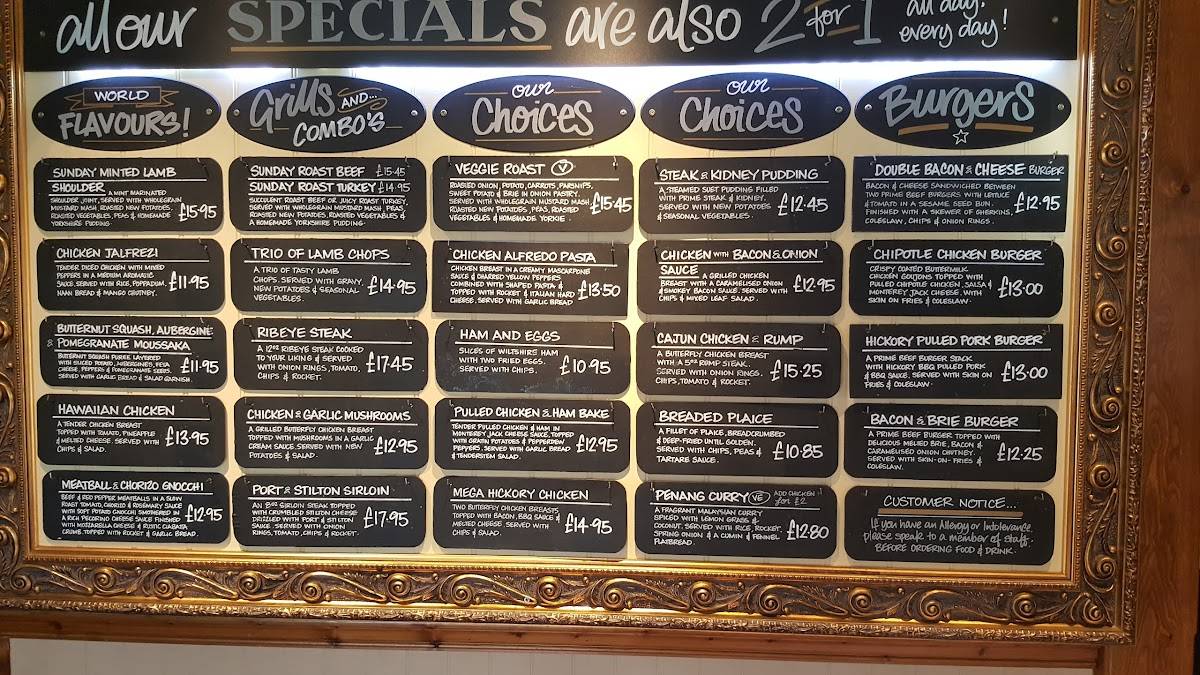 all our SPECIALS are also 2 for 1 all day.
every day!
WORLD
FLAVOURS!
SUNDAY MINTED LAMB
SHOULDER A MINT MARINATED
SHOULDER JOINT, SERVED WITH WHOLEGRAIN
MUSTARD MASH, ROASTED NEW POTATOES,
ROASTED VEGETABLES, PEAS & HOMEMADE
YORKSHIRE PUDDING
£15.95
CHICKEN JALFREZI
TENDER DICED CHICKEN WITH MIXED
PEPPERS IN A MEDIUM AROMATIC
SAUCE. SERVED WITH RICE, POPPADUM,
NAAN BREAD & MANGO CHUTNEY.
£11.95
BUTTERNUT SQUASH, AUBERGINE
& POMEGRANATE MOUSSAKA
BUTTERNUT SQUASH PUREE LAYERED
WITH SLICED POTATO, AUBERGINES, FETA
CHEESE, PEPPERS & POMEGRANATE SEEDS.
SERVED WITH GARLIC BREAD & SALAD GARNISH.
£11.95
HAWAIIAN CHICKEN
A TENDER CHICKEN BREAST
TOPPED WITH TOMATO, PINEAPPLE
& MELTED CHEESE. SERVED WITH
CHIPS & SALAD.
£13.95
MEATBALL & CHORIZO GNOCCHI
BEEF & RED PEPPER MEATBALLS IN A SLOW
ROAST TOMATO, CHORIZO & ROSEMARY SAUCE
WITH SOFT POTATO GNOCCHI SMOTHERED IN
A RICH PECORINO CHEESE SAUCE FINISHED
WITH MOZZARELLA CHEESE & RUSTIC CIABATTA
CRUMB. TOPPED WITH ROCKET & GARLIC BREAD.
£12.95
Grills AND...
COMBO'S
SUNDAY ROAST BEEF £15.45
SUNDAY ROAST TURKEY £14.95
SUCCULENT ROAST BEEF OR JUICY ROAST TURKEY.
SERVED WITH WHOLEGRAIN MUSTARD MASH, PEAS,
ROASTED NEW POTATOES, ROASTED VEGETABLES &
A HOMEMADE YORKSHIRE PUDDING.
TRIO OF LAMB CHOPS
A TRIO OF TASTY LAMB
CHOPS. SERVED WITH GRAVY,
NEW POTATOES & SEASONAL
VEGETABLES.
£14.95
RIBEYE STEAK
A 12oz RIBEYE STEAK COOKED
TO YOUR LIKING & SERVED
WITH ONION RINGS, TOMATO,
CHIPS & ROCKET.
£17.45
CHICKEN & GARLIC MUSHROOMS
A GRILLED BUTTERFLY CHICKEN BREAST
TOPPED WITH MUSHROOMS IN A GARLIC
CREAM SAUCE. SERVED WITH NEW
POTATOES & SALAD.
£12.95
PORT & STILTON SIRLOIN
AN 8oz SIRLOIN STEAK TOPPED
WITH CRUMBLED STILTON CHEESE
DRIZZLED WITH PORT & STILTON
SAUCE. SERVED WITH ONION
RINGS, TOMATO, CHIPS & ROCKET.
£17.95
our
Choices
VEGGIE ROAST V
ROASTED ONION, POTATO, CARROTS, PARSNIPS,
SWEET POTATO & BRIE IN ONION PASTRY.
SERVED WITH WHOLEGRAIN MUSTARD MASH,
ROASTED NEW POTATOES, PEAS, ROASTED
VEGETABLES & HOMEMADE YORKIE.
£15.45
CHICKEN ALFREDO PASTA
CHICKEN BREAST IN A CREAMY MASCARPONE
SAUCE & CHARRED YELLOW PEPPERS
COMBINED WITH SHAPED PASTA &
TOPPED WITH ROCKET & ITALIAN HARD
CHEESE, SERVED WITH GARLIC BREAD
£13.50
HAM AND EGGS
SLICES OF WILTSHIRE HAM
WITH TWO FRIED EGGS.
SERVED WITH CHIPS.
£10.95
PULLED CHICKEN & HAM BAKE
TENDER PULLED CHICKEN & HAM IN
MONTEREY JACK CHEESE SAUCE, TOPPED
WITH GRATIN POTATOES & PEPPERDEW
PEPPERS. SERVED WITH GARLIC BREAD
& TENDERSTEM SALAD.
£12.95
MEGA HICKORY CHICKEN
TWO BUTTERFLY CHICKEN BREASTS
TOPPED WITH BACON, BBQ SAUCE &
MELTED CHEESE. SERVED WITH
CHIPS & SALAD.
£14.95
our
Choices
STEAK & KIDNEY PUDDING
A STEAMED SUET PUDDING FILLED
WITH PRIME STEAK & KIDNEY.
SERVED WITH NEW POTATOES
& SEASONAL VEGETABLES.
£12.45
CHICKEN WITH BACON & ONION
SAUCE A GRILLED CHICKEN
BREAST WITH A CARAMELISED ONION
& SMOKEY BACON SAUCE. SERVED WITH
CHIPS & MIXED LEAF SALAD.
£12.95
CAJUN CHICKEN & RUMP
A BUTTERFLY CHICKEN BREAST
WITH A 5oz RUMP STEAK.
SERVED WITH ONION RINGS,
CHIPS, TOMATO & ROCKET.
£15.25
BREADED PLAICE
A FILLET OF PLAICE, BREADCRUMBED
& DEEP-FRIED UNTIL GOLDEN.
SERVED WITH CHIPS, PEAS &
TARTARE SAUCE.
£10.85
PENANG CURRY VE ADD CHICKEN
for £2
A FRAGRANT MALAYSIAN CURRY
SPICED WITH LEMON GRASS &
COCONUT. SERVED WITH RICE, ROCKET,
SPRING ONION & A CUMIN & FENNEL
FLATBREAD.
£12.80
Burgers
DOUBLE BACON & CHEESE BURGER
BACON & CHEESE SANDWICHED BETWEEN
TWO PRIME BEEF BURGERS WITH LETTUCE
& TOMATO IN A SESAME SEED BUN.
FINISHED WITH A SKEWER OF GHERKINS,
COLESLAW, CHIPS & ONION RINGS.
£12.95
CHIPOTLE CHICKEN BURGER
CRISPY COATED BUTTERMILK
CHICKEN GOUJONS TOPPED WITH
PULLED CHIPOTLE CHICKEN, SALSA &
MONTEREY JACK CHEESE, WITH
SKIN ON FRIES & COLESLAW.
£13.00
HICKORY PULLED PORK BURGER
A PRIME BEEF BURGER STACK
WITH HICKORY BBQ PULLED PORK
& BBQ SAUCE. SERVED WITH SKIN ON
FRIES & COLESLAW.
£13.00
BACON & BRIE BURGER
A PRIME BEEF BURGER TOPPED WITH
DELICIOUS MELTED BRIE, BACON &
CARAMELISED ONION CHUTNEY.
SERVED WITH SKIN-ON-FRIES &
COLESLAW.
£12.25
CUSTOMER NOTICE...
If you have an Allergy or Intolerance,
please speak to a member of staff,
BEFORE ORDERING FOOD & DRINK.